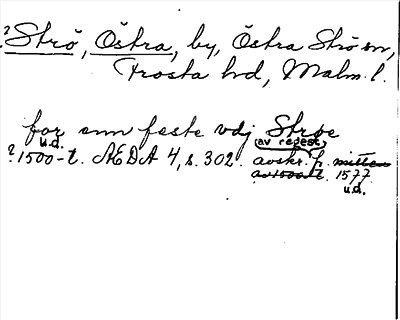 ? Strö, Östra, by, Östra Strö sn,
Frosta hd, Malm. l.
for enn feste vdj Strøe
u.d. (av regest)
? 1500-t. ÆDA 4, s. 302. avskr. fr. mitten
av 1500-t. 1577
u.d.